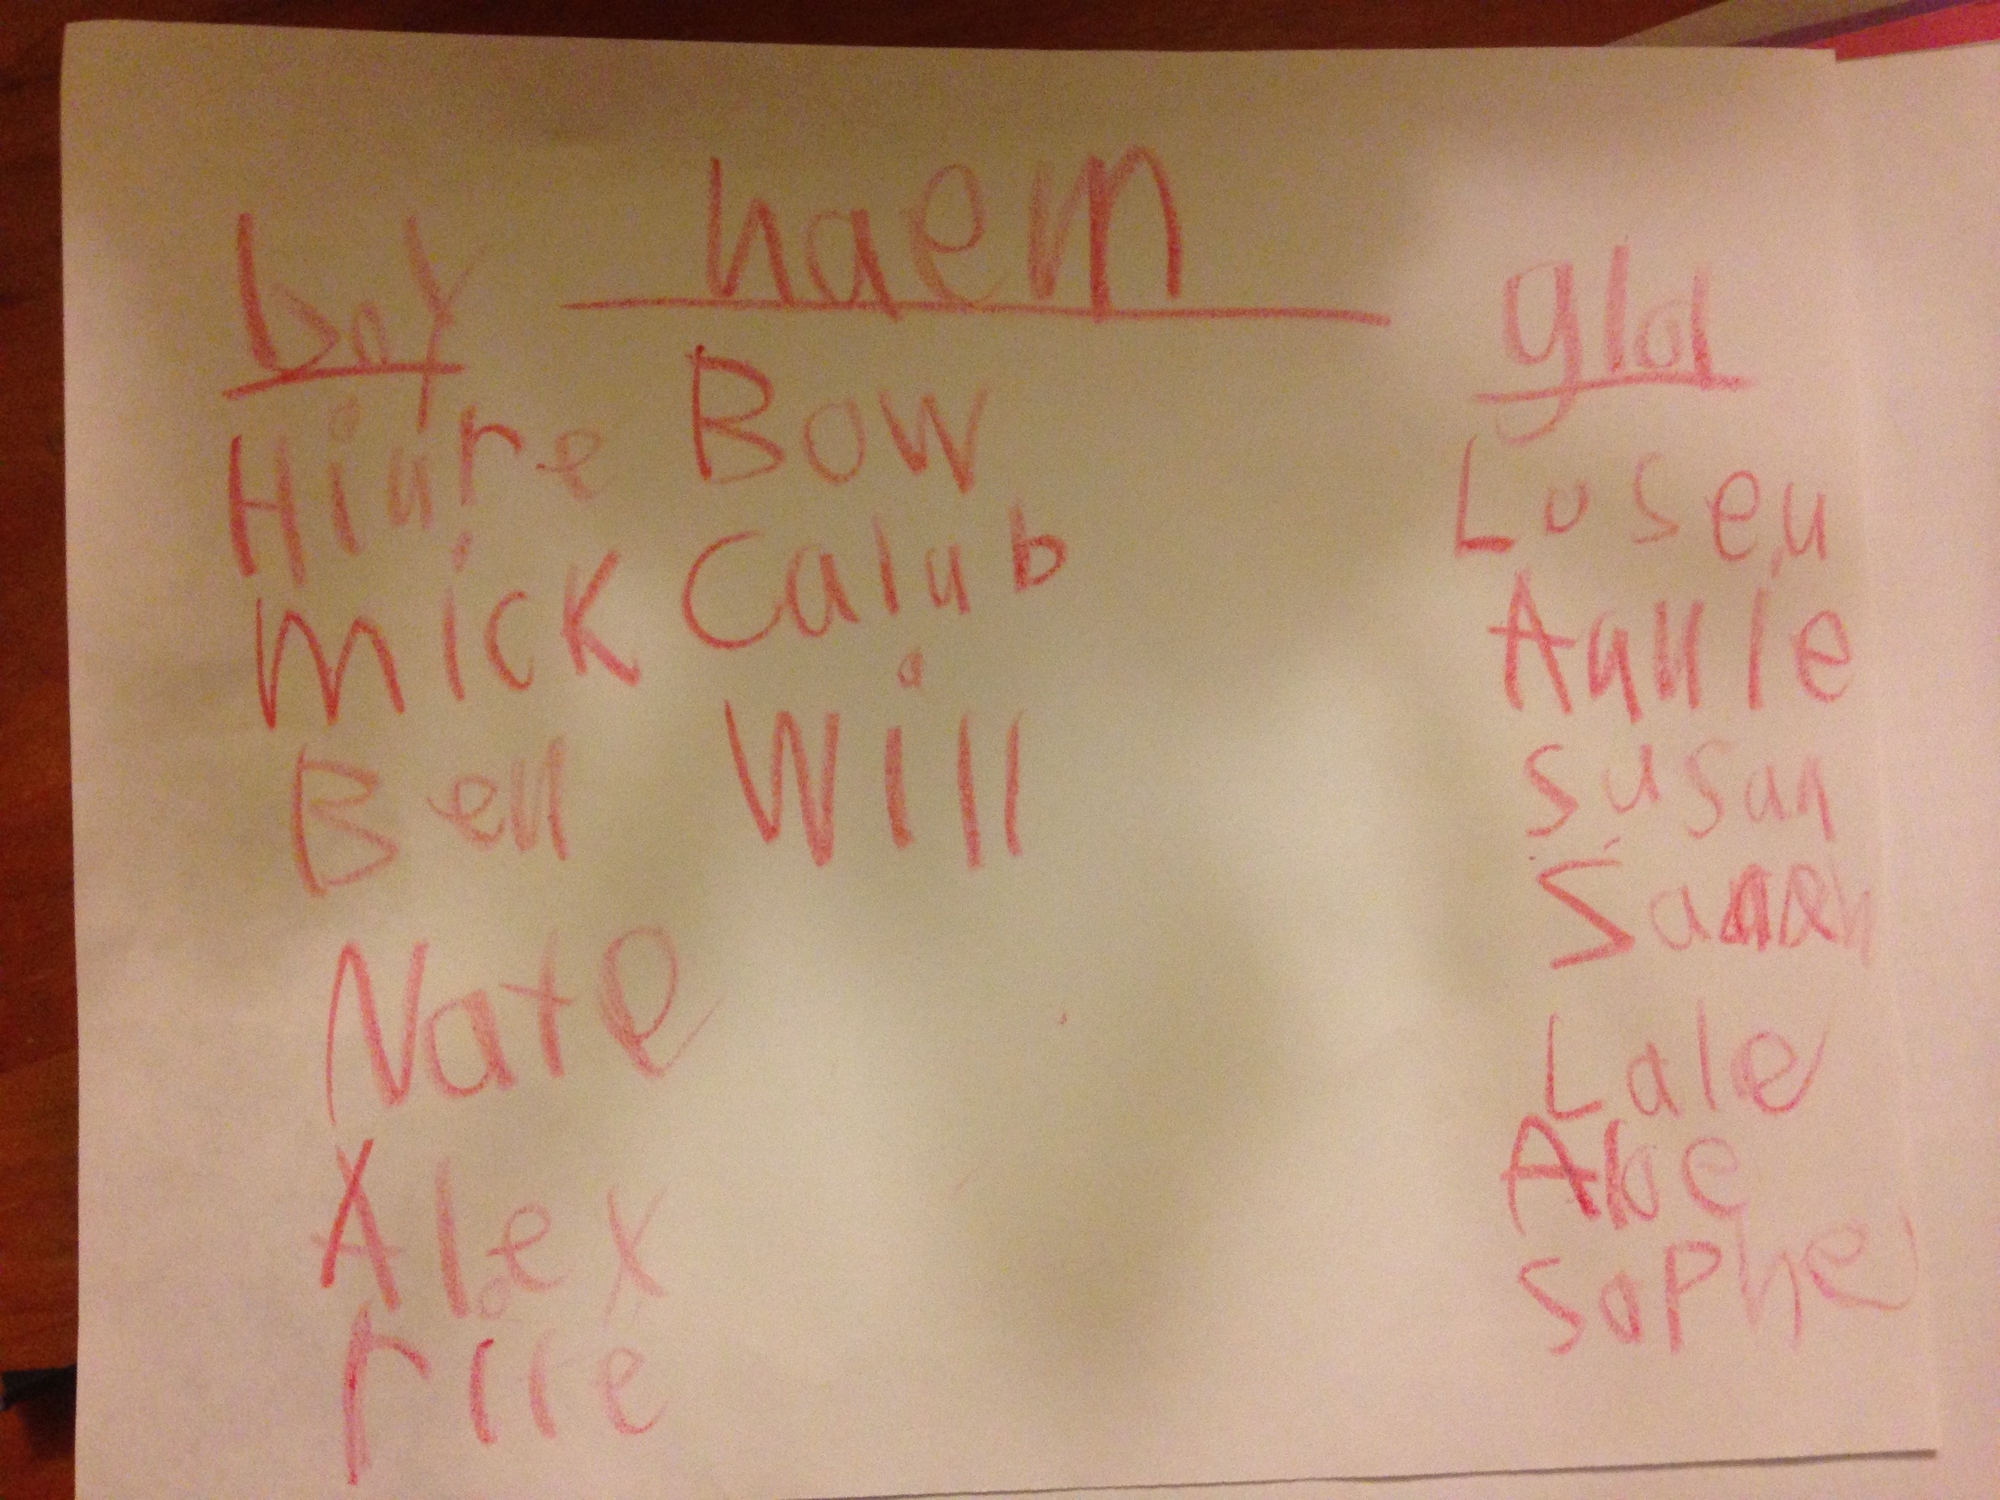 haem
boy
Hiure Bow
Mick Calub
Ben Will
Nate
Alex
rile
glol
Luseu
Annie
Susan
Sarah
Lale
Aloe
Sophe